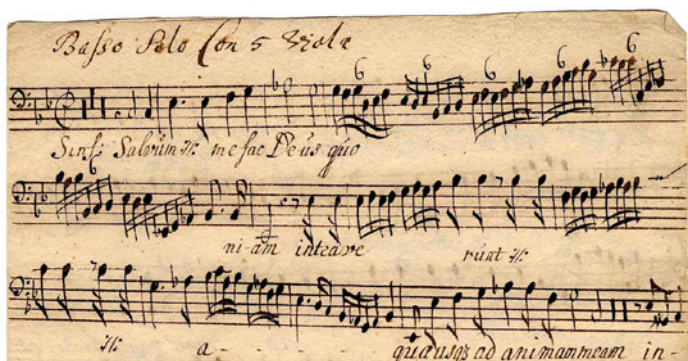 Basso Solo Con 5 Viole
6 6 6 6 6
Sinf: Salvum ://: me fac Deus quo
6
ni-am intrave runt ://:
://: a - - - - quæ usq; ad animam meam in-